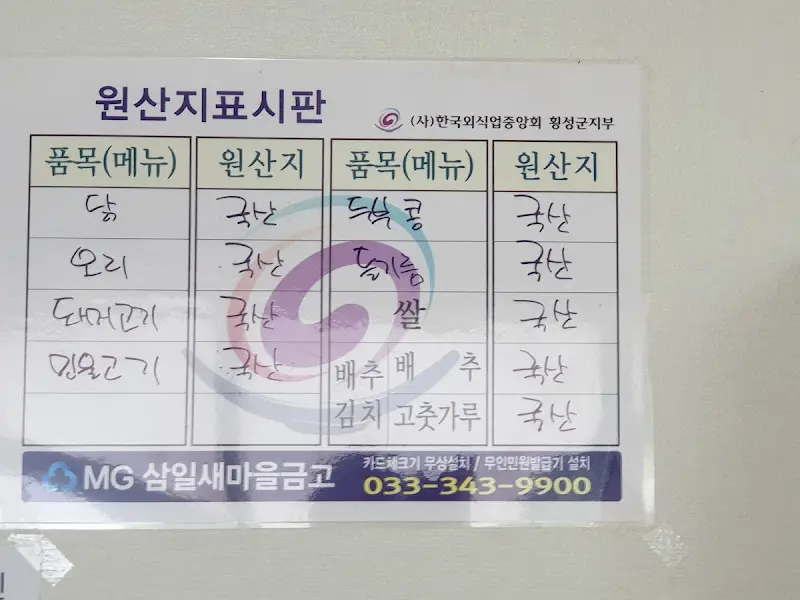 원산지표시판
(사)한국외식업중앙회 횡성군지부
품목(메뉴) 원산지 품목(메뉴) 원산지
닭 국산 두부콩 국산
오리 국산 들기름 국산
돼지고기 국산 쌀 국산
민물고기 국산 배추 배추 국산
김치 고춧가루 국산
MG 삼일새마을금고
카드체크기 무상설치 / 무인민원발급기 설치
033-343-9900